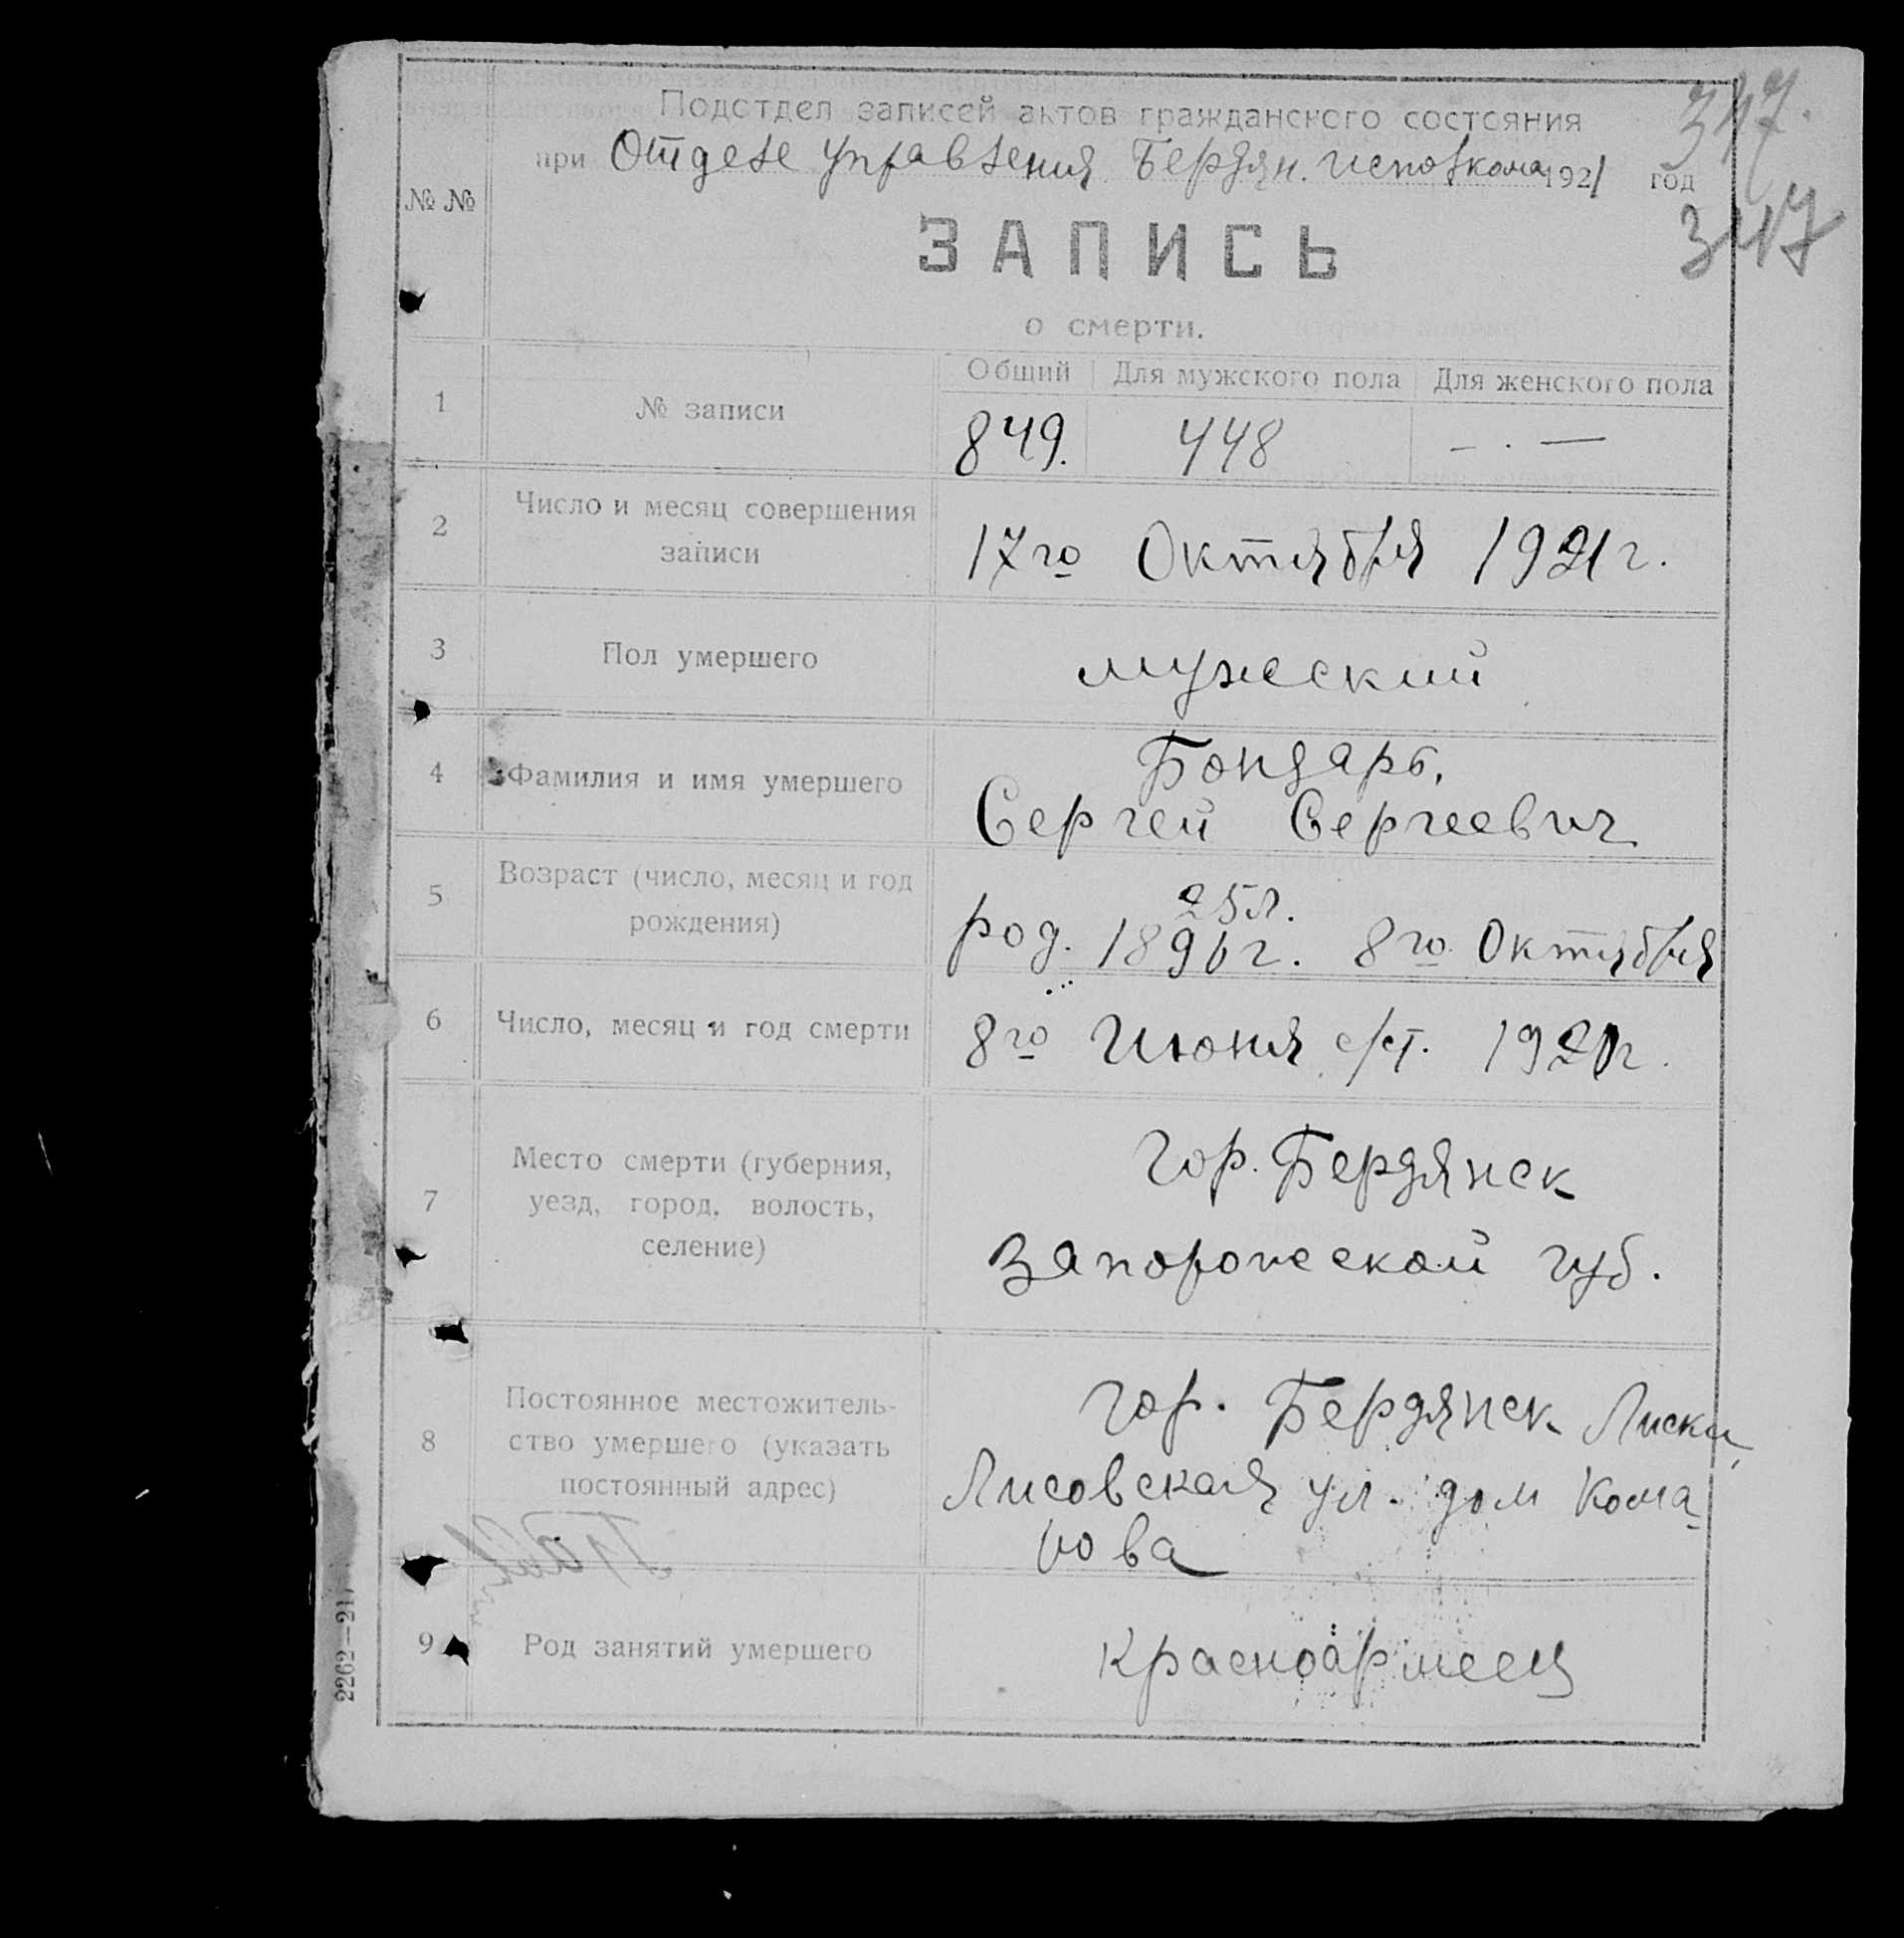 347.
Подотдел записей актов гражданского состояния
при Отделе Управления Бердян. исполкома 1921 год
347
№ №
ЗАПИСЬ
о смерти.
Общий Для мужского пола Для женского пола
1 № записи 849. 448 — . —
2 Число и месяц совершения
записи
17го Октября 1921 г.
3 Пол умершего мужеский
4 Фамилия и имя умершего Бондарь,
Сергей Сергеевич
5 Возраст (число, месяц и год
рождения)
25 л.
род. 1896 г. 8го Октября
6 Число, месяц и год смерти 8го Июня с/ст. 1921 г.
7 Место смерти (губерния,
уезд, город, волость,
селение)
гор. Бердянск
Запорожской губ.
8 Постоянное местожитель-
ство умершего (указать
постоянный адрес)
гор. Бердянск Лиски,
Лисовская ул. дом Кома-
рова
9 Род занятий умершего Красноармеец
2262—21